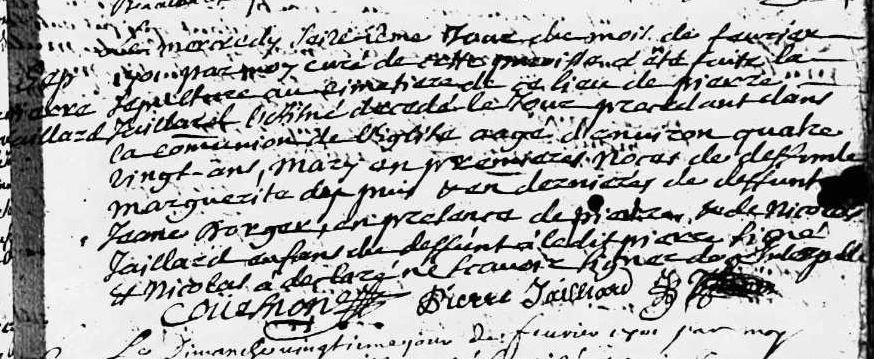 mercredy seizieme Jour du mois de fevrier
1701 par moy curé de cette paroisse d été faite la
Sep Sepulture au cimetiere de ce lieu de pierre
pierre Jaillard decedé le Jour precedant dans
Jaillard la comunion de l'Eglise aagé d'environ quatre
vingt-ans, mary en premieres Noces de deffunte
marguerite du puis & en dernieres de deffunte
Jaane Borger, en presance de pierre & de Nicolas
Jaillard enfans du deffunt à ledit pierre signé
& Nicolas à declaré ne scavoir signer
Pierre Jailliard
Le Dimanche vingtieme jour de fevrier 1701 par moy